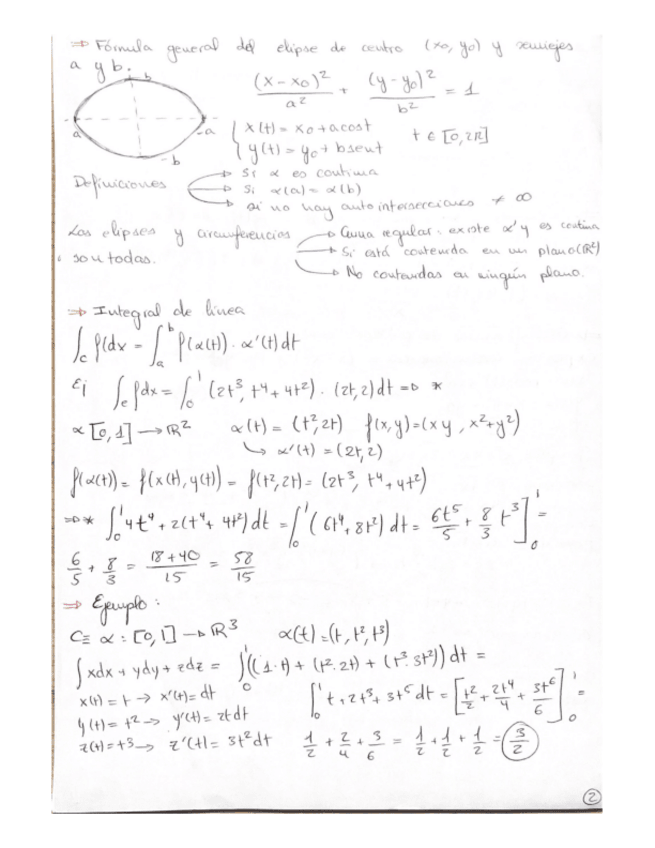 ⇒ Fórmula general del elipse de centro (x0, y0) y semiejes
a y b.
(x-x0)²/a² + (y-y0)²/b² = 1
b
a
-a
-b
{ x(t) = x0 + a cost
y(t) = y0 + b sent
t ∈ [0, 2π]
Definiciones
→ Si α es continua
→ Si α(a) = α(b)
→ si no hay autointersecciones ≠ ∞
Las elipses y circunferencias
son todas.
→ Curva regular: existe α' y es continua
→ Si está contenida en un plano (R²)
→ No contenidas en ningún plano.
⇒ Integral de línea
∫c f(dx = ∫a^b f(α(t)) · α'(t) dt
Ej ∫c f dx = ∫0^1 (2t³, t⁴ + 4t²) · (2t, 2) dt ⇒ *
α [0,1] → R² α(t) = (t², 2t) f(x,y) = (xy, x²+y²)
↳ α'(t) = (2t, 2)
f(α(t)) = f(x(t), y(t)) = f(t², 2t) = (2t³, t⁴ + 4t²)
⇒ * ∫0^1 4t⁴ + 2(t⁴ + 4t²) dt = ∫0^1 (6t⁴, 8t²) dt = 6t⁵/5 + 8/3 t³ ]0^1 =
6/5 + 8/3 = 18+40/15 = 58/15
⇒ Ejemplo:
C ≡ α: [0,1] → R³ α(t) = (t, t², t³)
∫ xdx + ydy + zdz = ∫0^1 ((1·t) + (t²·2t) + (t³·3t²)) dt =
x(t) = t → x'(t) = dt
∫0^1 t + 2t³ + 3t⁵ dt = [t²/2 + 2t⁴/4 + 3t⁶/6]0^1 =
y(t) = t² → y'(t) = 2t dt
z(t) = t3 → z'(t) = 3t² dt
1/2 + 2/4 + 3/6 = 1/2 + 1/2 + 1/2 = 3/2
2